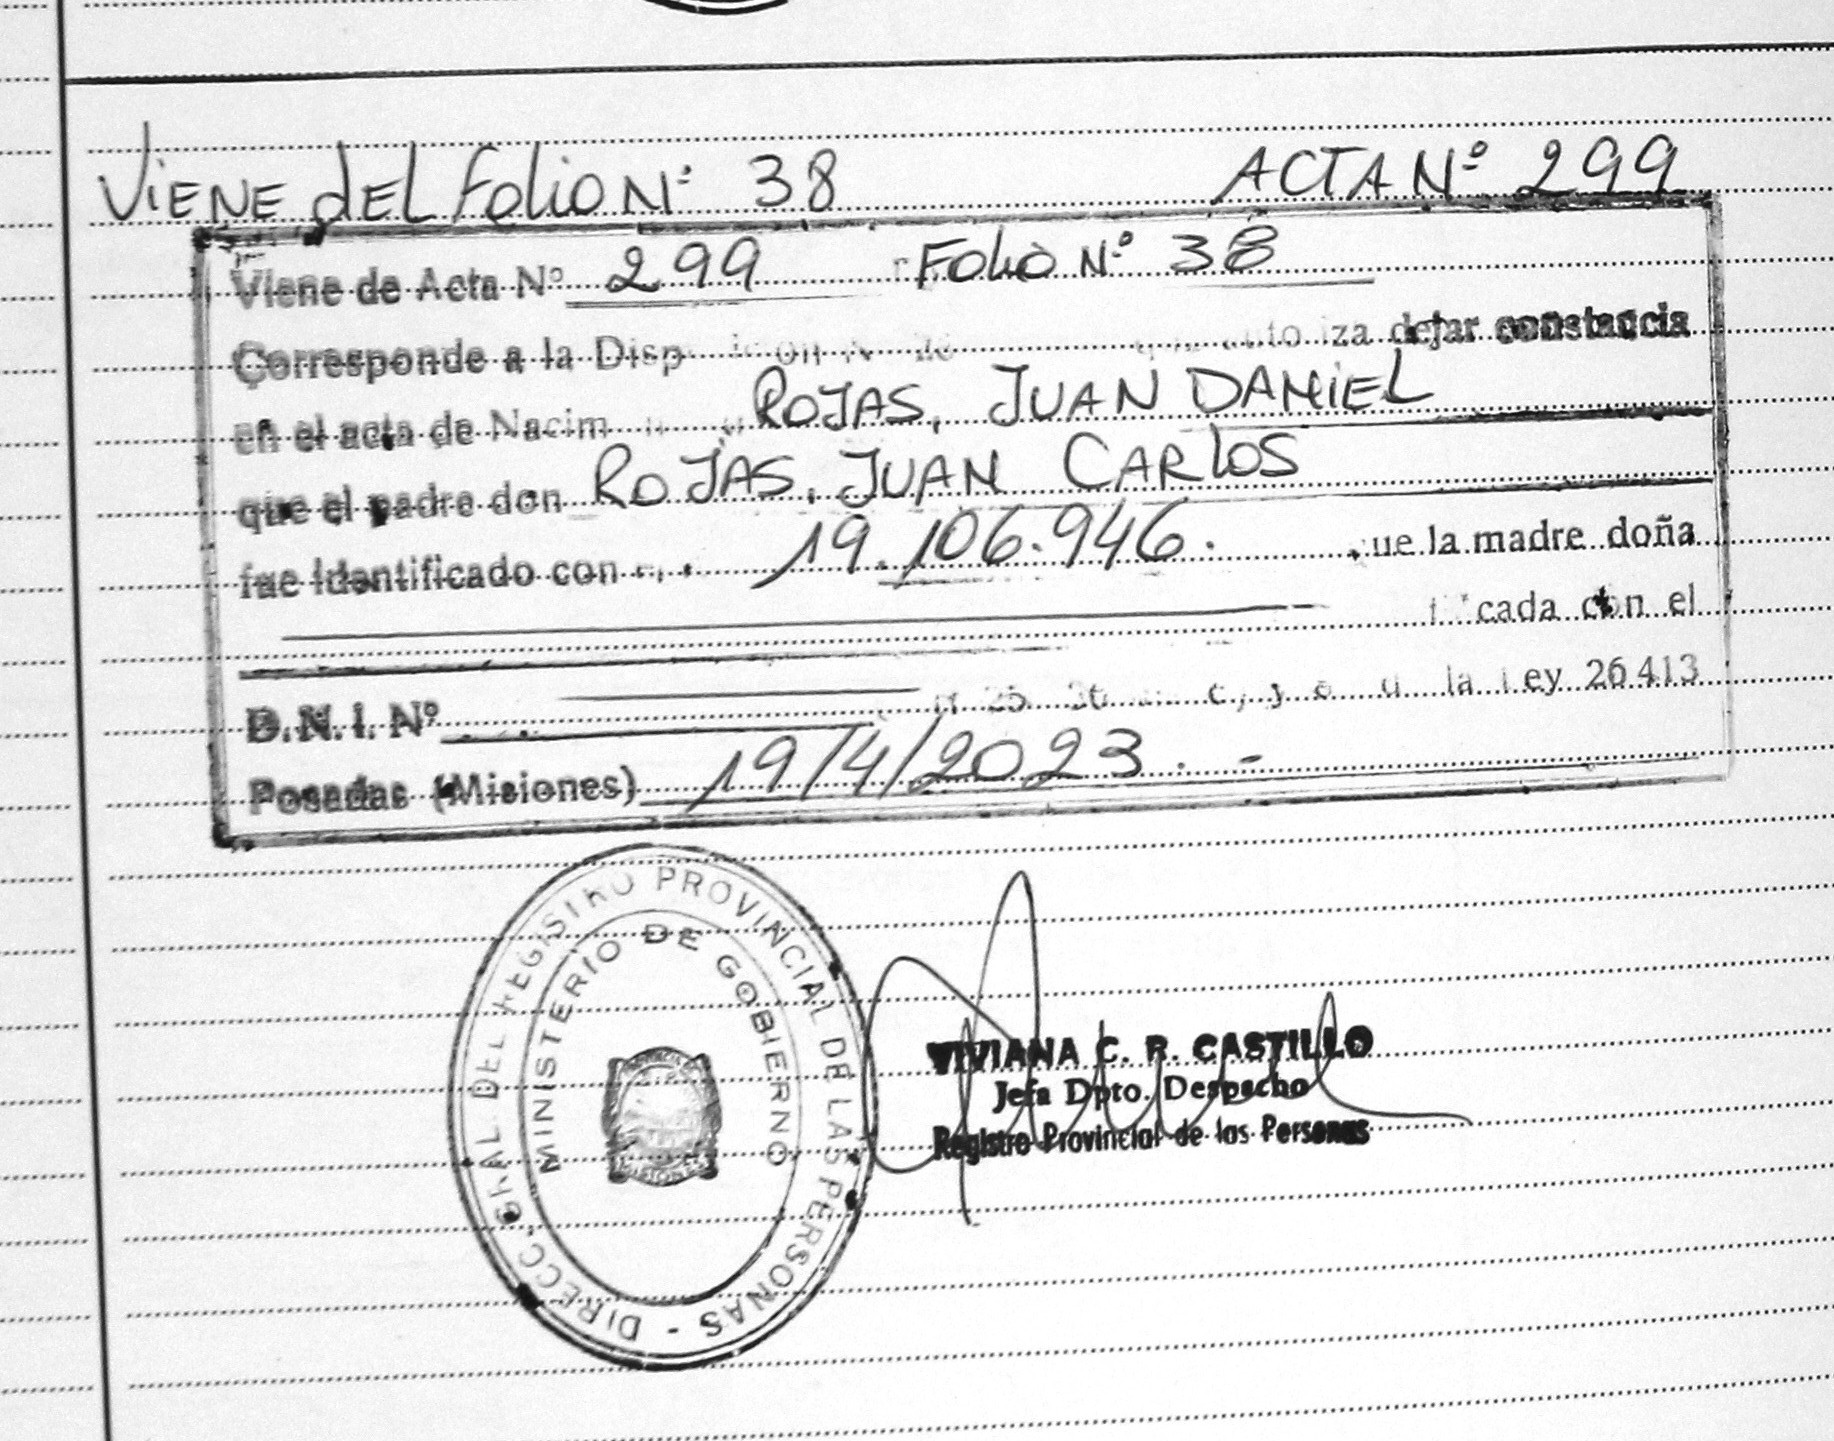 VIENE dEL FOLIO Nº 38 ACTA Nº 299
Viene de Acta Nº 299 FOLIO Nº 38
Corresponde a la dejar constancia
en el acta de ROJAS, JUAN DANIEL
que el padre don ROJAS, JUAN CARLOS
fue identificado con 19.106.946. la madre doña
con el
D.N.I. Nº la Ley 26413
Posadas (Misiones) 19/4/2023.-
DIRECC. GRAL. DEL REGISTRO PROVINCIAL DE LAS PERSONAS -
MINISTERIO DE GOBIERNO
MISIONES
VIVIANA C. R. CASTILLO
Jefa Dpto. Despacho
Registro Provincial de las Personas